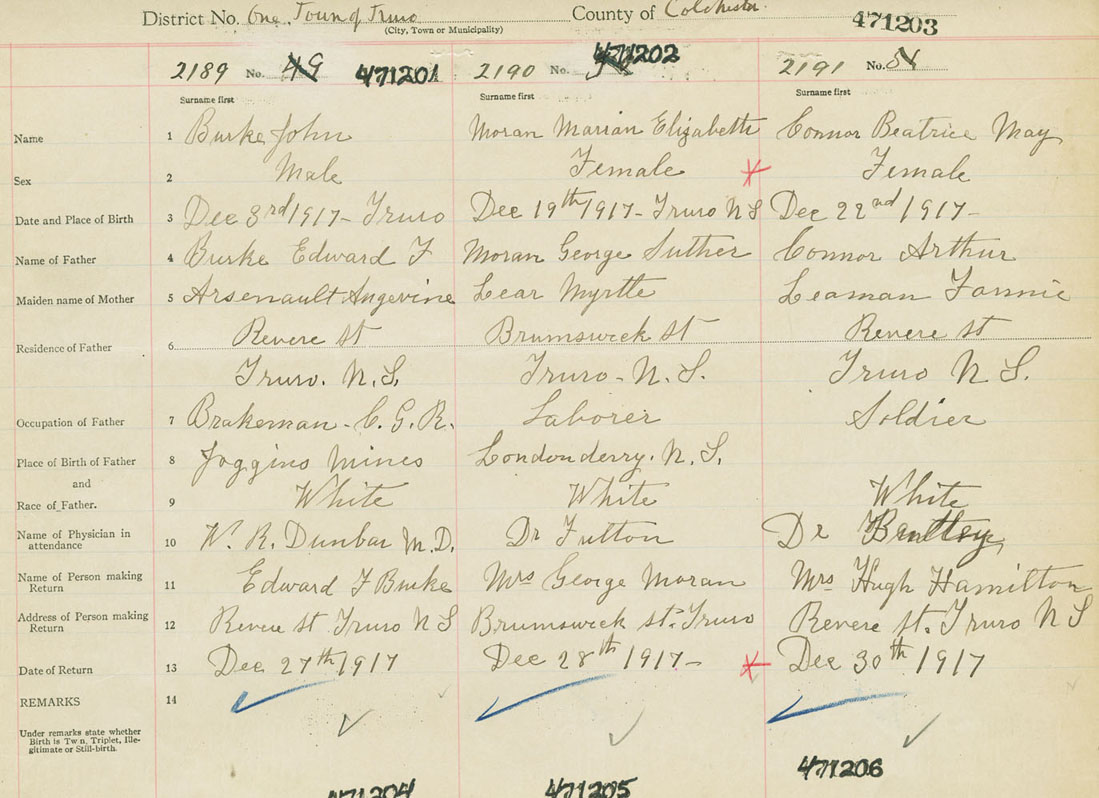 District No. One, Town of Truro County of Colchester.
(City, Town or Municipality)
471203
2189 No. 49 471201 2190 No. 471202 2191 No. 51
Surname first Surname first Surname first
Name 1 Burke John Moran Marian Elizabeth Connor Beatrice May
Sex 2 Male Female Female
Date and Place of Birth 3 Dec 3rd 1917 - Truro Dec 19th 1917 - Truro N S Dec 22nd 1917 -
Name of Father 4 Burke Edward F Moran George Suther Connor Arthur
Maiden name of Mother 5 Arsenault Angevine Lear Myrtle Leaman Fannie
Residence of Father 6 Revere St Brumswick St Revere St
Truro. N.S. Truro - N.S. Truro N S.
Occupation of Father 7 Brakeman - C.G.R. Laborer Soldier
Place of Birth of Father 8 Joggins Mines Londonderry. N.S.
and
Race of Father. 9 White White White
Name of Physician in attendance 10 W. R. Dunbar M.D. Dr Futton Dr
Name of Person making Return 11 Edward F Burke Mrs George Moran Mrs Hugh Hamilton
Address of Person making Return 12 Revere St Truro N S Brumswick St. Truro Revere St. Truro N S
Date of Return 13 Dec 27th 1917 Dec 28th 1917 - Dec 30th 1917
REMARKS 14
Under remarks state whether
Birth is Twin, Triplet, Ille-
gitimate or Still-birth.
471204 471205 471206